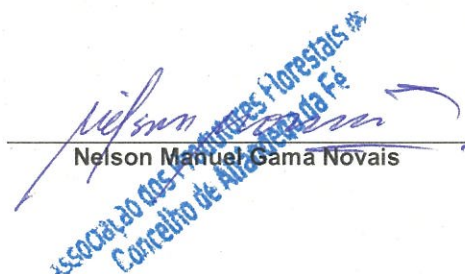 Nelson Novais
Nelson Manuel Gama Novais
Associação dos Produtores Florestais do
Concelho de Alfândega da Fé